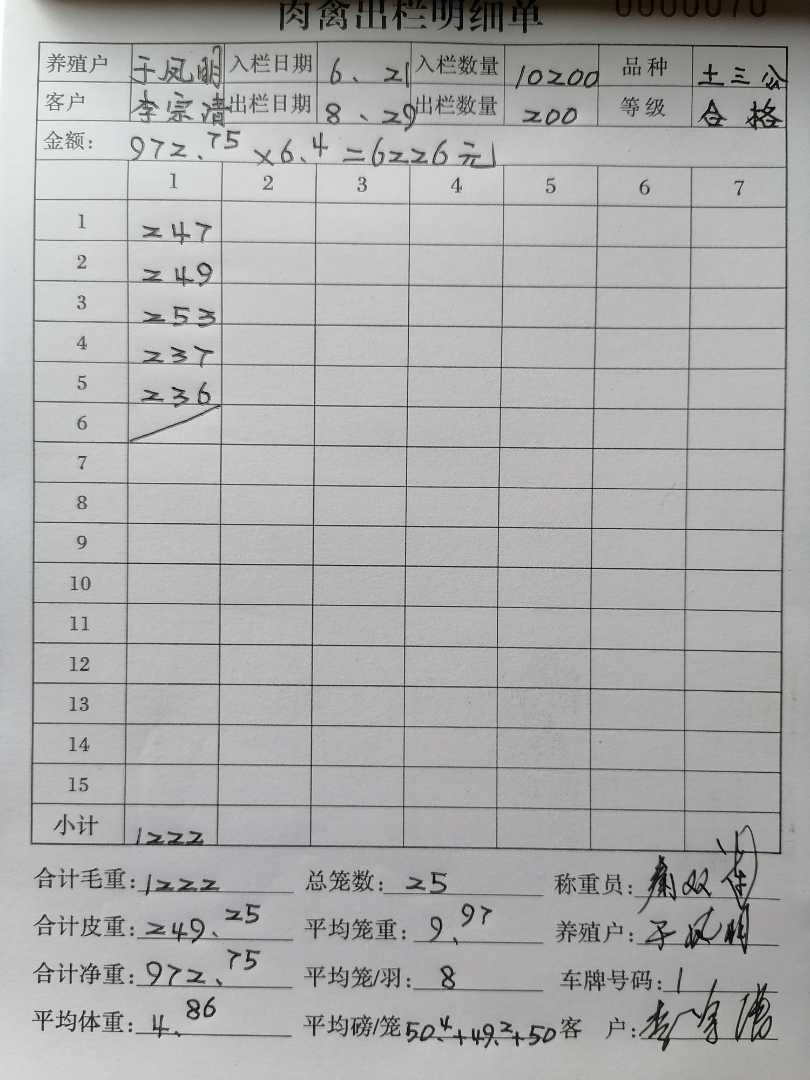 肉禽出栏明细单 0000070
养殖户 于凤明 入栏日期 6、21 入栏数量 10200 品种 土三公
客户 李宗清 出栏日期 8、29 出栏数量 200 等级 合格
金额: 972.75×6.4=6226元
1 2 3 4 5 6 7
1 247
2 249
3 253
4 237
5 236
6
7
8
9
10
11
12
13
14
15
小计 1222
合计毛重: 1222 总笼数: 25 称重员: 秦双
合计皮重: 249.25 平均笼重: 9.97 养殖户: 于凤明
合计净重: 972.75 平均笼/羽: 8 车牌号码: 1
平均体重: 4.86 平均磅/笼 50.4+49.2+50 客 户: 李宗清